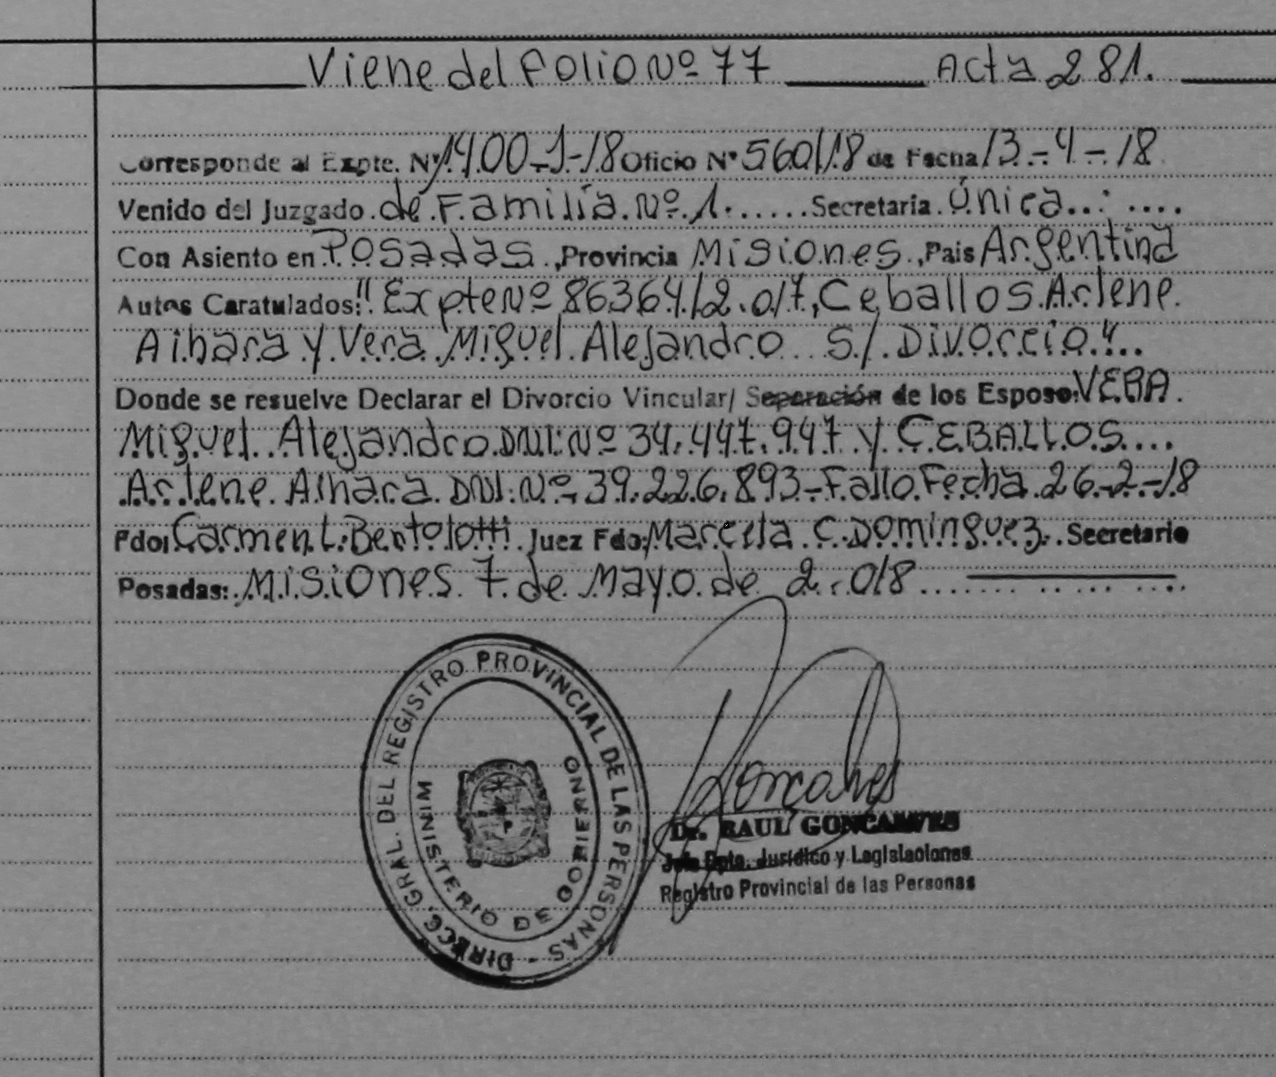 Viene del folio Nº 77 Acta 281.
Corresponde al Expte. Nº 1400-1-18 Oficio Nº 560/18 de Fecha 13-4-18
Venido del Juzgado de Familia Nº 1. Secretaria Única
Con Asiento en Posadas, Provincia Misiones, Pais Argentina
Autos Caratulados: "Expte Nº 86364/2.017, Ceballos Arlene
Aihara y Vera Miguel Alejandro S/ Divorcio"
Donde se resuelve Declarar el Divorcio Vincular/ Separación de los Esposo: VERA
Miguel Alejandro DNI: Nº 34.447.947 y CEBALLOS
Arlene Aihara DNI: Nº 39.226.893 - Fallo Fecha 26-2-18
Fdo: Carmen L. Bertolotti Juez Fdo: Marcela C. Dominguez. Secretario
Posadas: Misiones 7 de Mayo de 2.018
DIRECC. GRAL. DEL REGISTRO PROVINCIAL DE LAS PERSONAS -
MINISTERIO DE GOBIERNO
Goncalves
Dr. RAUL GONCALVES
Jefe Dpto. Jurídico y Legislaciones
Registro Provincial de las Personas